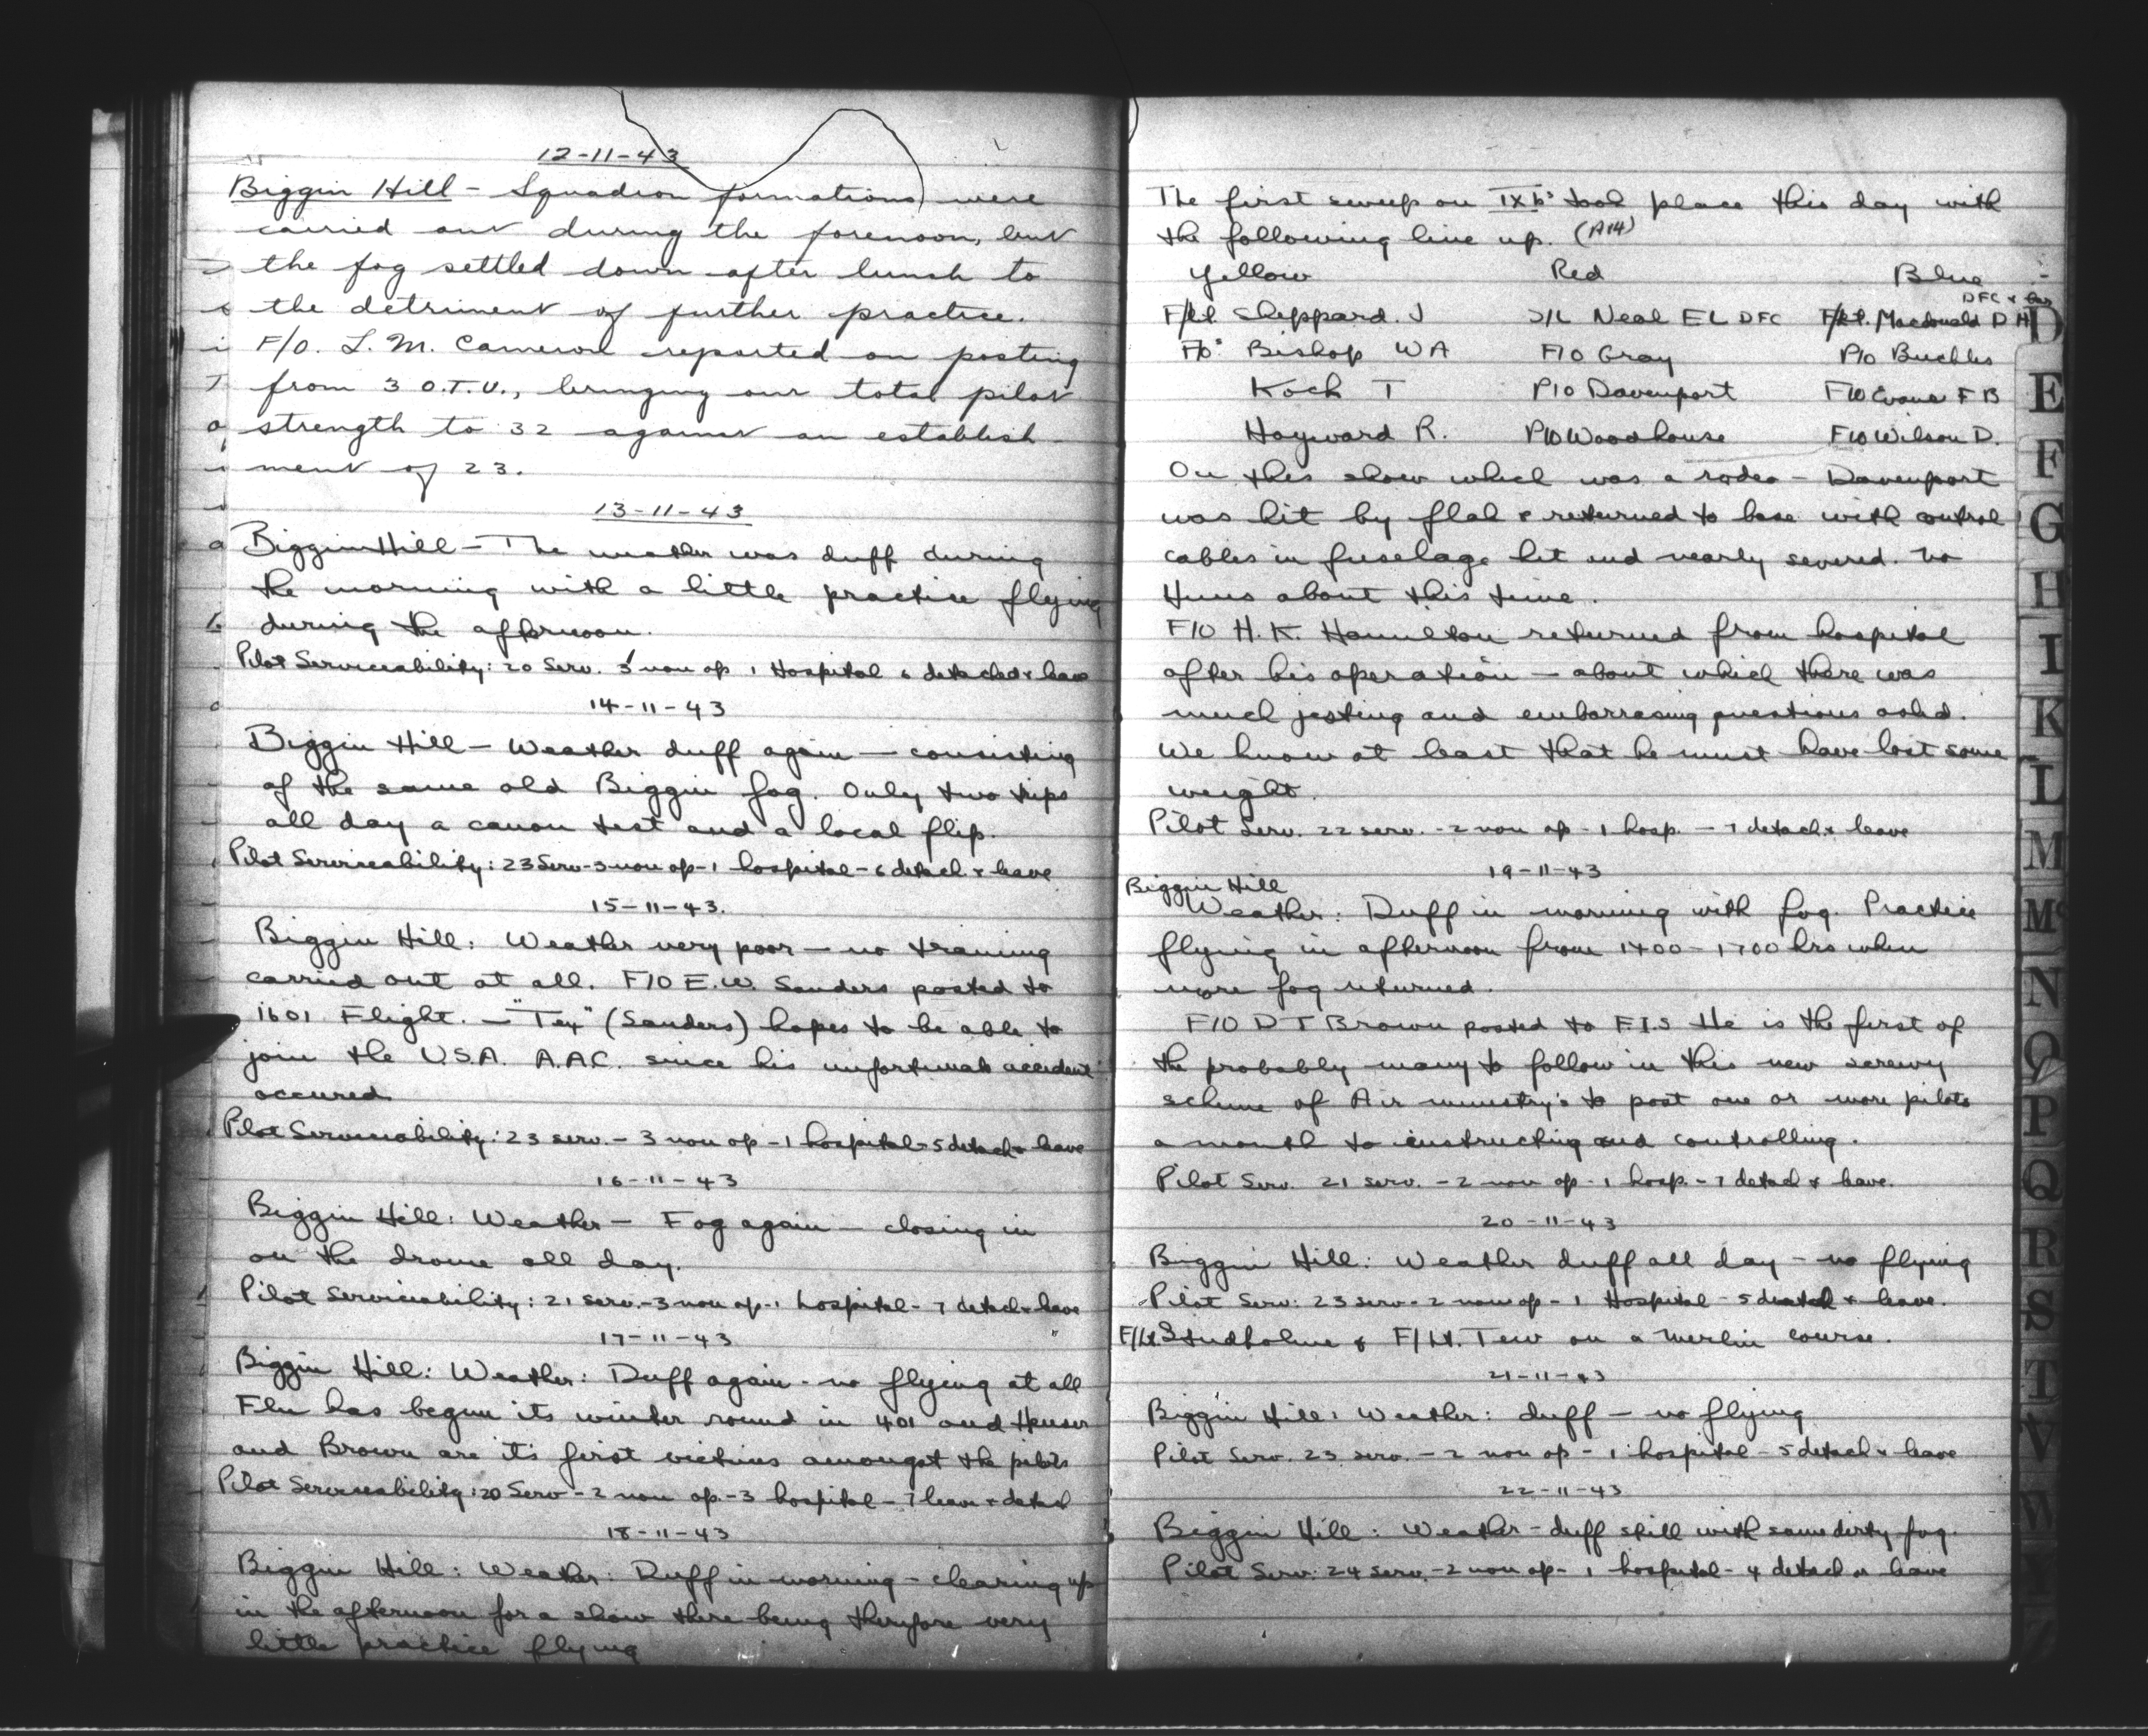 12-11-43
Biggin Hill - Squadron formations were
carried out during the forenoon, but
the fog settled down after lunch to
the detriment of further practice.
F/O. L. M. Cameron reported on posting
from 3 O.T.U., bringing our total pilot
strength to 32 against an establish-
ment of 23.
13-11-43
Biggin Hill - The weather was duff during
the morning with a little practice flying
during the afternoon.
Pilot Serviceability: 20 Serv. 5 non op 1 Hospital 6 detached & leave
14-11-43
Biggin Hill - Weather duff again - consisting
of the same old Biggin fog. Only two trips
all day a canon test and a local flip.
Pilot Serviceability: 23 Serv-3 non op-1 hospital-6 detach. & leave
15-11-43.
Biggin Hill: Weather very poor - no training
carried out at all. F/O E.W. Sanders posted to
1601 Flight. - "Tex" (Sanders) hopes to be able to
join the U.S.A. A.A.C. since his unfortunate accident
occured.
Pilot Serviceability: 23 serv. - 3 non op - 1 hospital-5 detach & leave
16-11-43
Biggin Hill: Weather - Fog again - closing in
on the drome all day.
Pilot Serviceability: 21 serv.-3 non op-1 hospital-7 detach & leave
17-11-43
Biggin Hill: Weather: Duff again - no flying at all
Flu has begun its winter round in 401 and Heuser
and Brown are it's first victims amongst the pilots
Pilot Serviceability: 20 Serv-2 non op-3 hospital-7 leave & detach
18-11-43
Biggin Hill: Weather: Duff in morning - clearing up
in the afternoon for a show there being therefore very
little practice flying
The first sweep on IXb's took place this day with
the following line up. (A14)
Yellow Red Blue
DFC & Bar
F/Lt. Sheppard. J S/L Neal EL DFC F/Lt. Macdonald D H
F/O's Bishop W A F/O Gray P/O Buckles
Koch T P/O Davenport F/O Evans F B
Hayward R. P/O Woodhouse F/O Wilson D.
On this show which was a rodeo - Davenport
was hit by flak & returned to base with control
cables in fuselage hit and nearly severed. No
Huns about this time.
F/O H.K. Hamilton returned from hospital
after his operation - about which there was
much jesting and embarrasing questions asked.
We know at least that he must have lost some
weight.
Pilot Serv. 22 serv. - 2 non op - 1 hosp. - 7 detach & leave
19-11-43
Biggin Hill
Weather: Duff in morning with fog. Practice
flying in afternoon from 1400 - 1700 hrs when
more fog returned.
F/O D T Brown posted to F.I.S He is the first of
the probably many to follow in this new screwy
scheme of Air ministry's to post one or more pilots
a month to instructing and controlling.
Pilot Serv. 21 serv. - 2 non op - 1 hosp. - 7 detach & leave.
20-11-43
Biggin Hill: Weather duff all day - no flying
Pilot Serv: 23 serv - 2 non op - 1 Hospital - 5 detach & leave.
F/Lt. Studholme & F/Lt. Tew on a Merlin course.
21-11-43
Biggin Hill: Weather: duff - no flying
Pilot Serv. 23 serv. - 2 non op - 1 hospital - 5 detach & leave
22-11-43
Biggin Hill: Weather - duff still with some dirty fog.
Pilot Serv: 24 serv. - 2 non op - 1 hospital - 4 detach & leave
D
E
F
G
H
I
K
L
M
Mc
N
O
P
Q
R
S
T
V
W
Y
Z